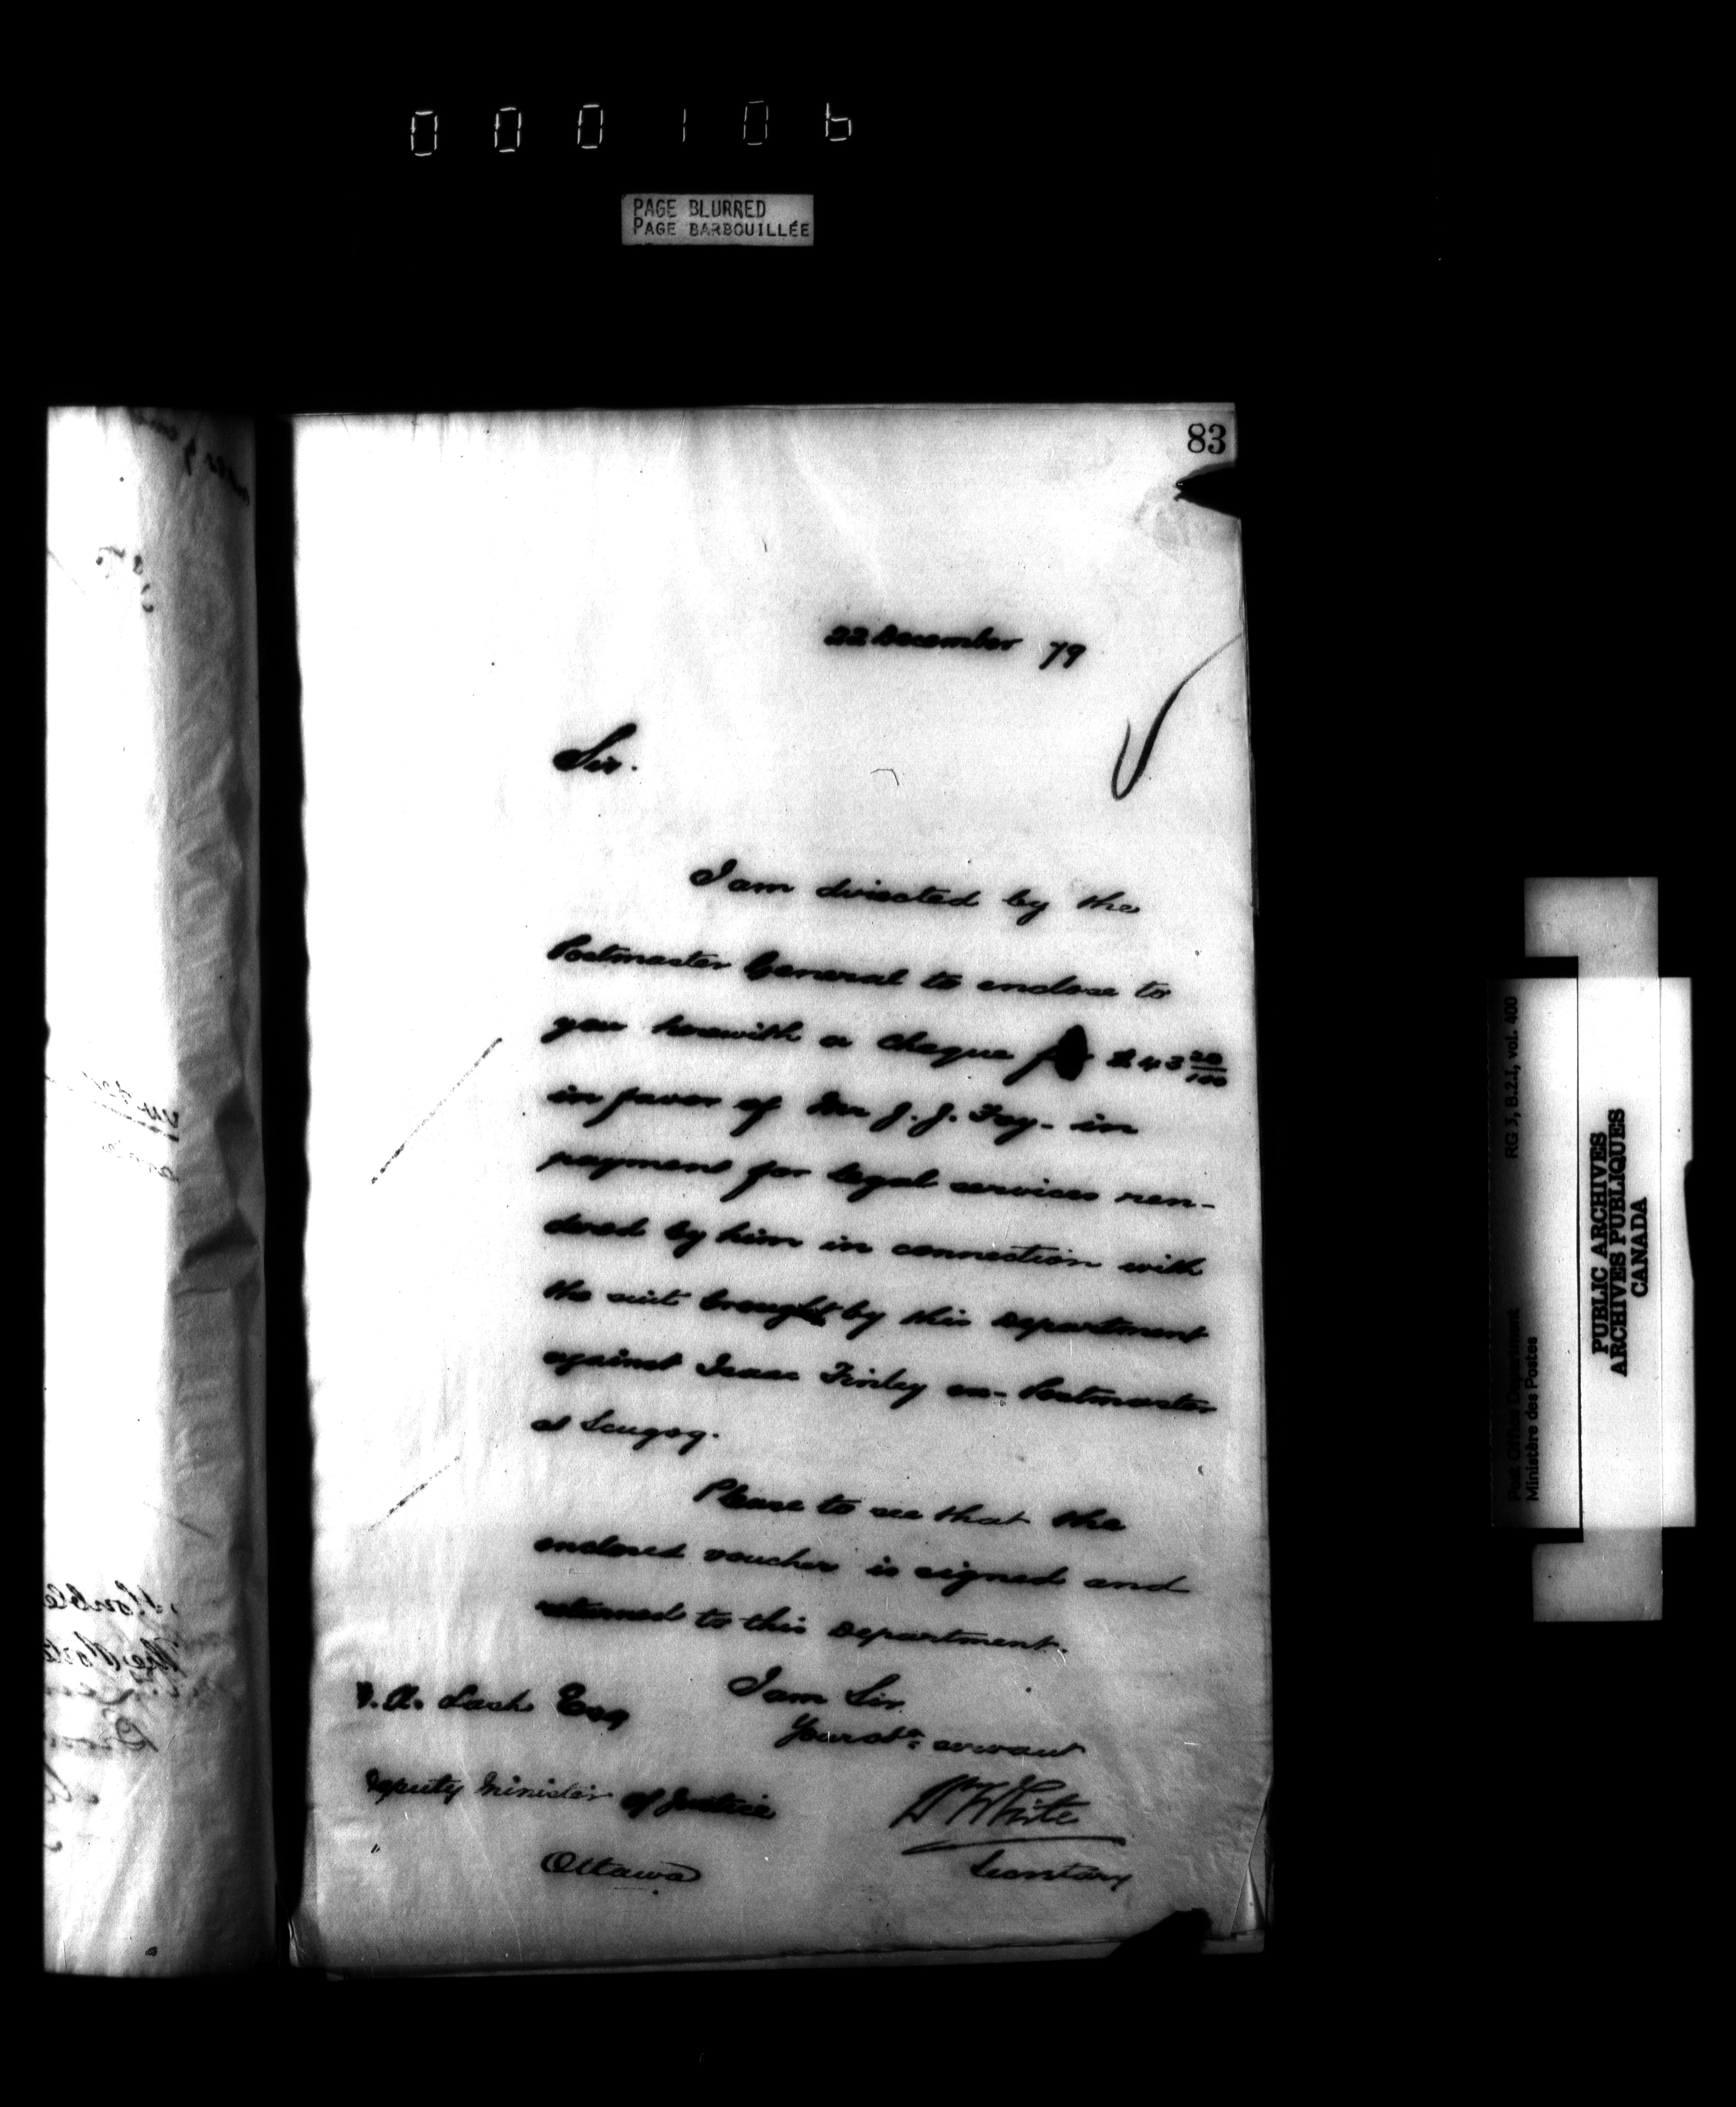 000106
PAGE BLURRED
PAGE BARBOUILLÉE
83
22 December 79
Sir.
I am directed by the
Postmaster General to enclose to
you herewith a cheque for $43 20/100
in favor of Mr J. J. Foy - in
payment for legal services ren-
dered by him in connection with
the suit brought by this Department
against Isaac Finley ex-Postmaster
at Scugog.
Please to see that the
enclosed voucher is signed and
returned to this Department.
I am Sir
Your obt. servant
Wm White
Secretary
Z. A. Lash Esq
Deputy Minister of Justice
Ottawa
RG 3, B.2.1, vol. 400
Post Office Department
Ministère des Postes
PUBLIC ARCHIVES
ARCHIVES PUBLIQUES
CANADA